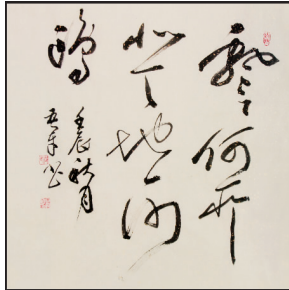 飘々何所
似天地一沙
鸥
壬辰秋月